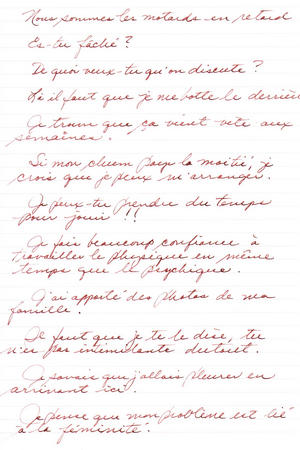 Nous sommes les motards en retard
Es-tu fâché?
De quoi veux-tu qu'on discute?
Là il faut que je me botte le derrière
Je trouve que ça vient vite aux
semaines.
Si mon chum paye la moitié, j
crois que je peux m'arranger.
Je peux-tu prendre du temps
pour jouir !!
Je fais beaucoup confiance à
travailler le physique en même
temps que le psychique.
J'ai apporté des photos de ma
famille.
Il faut que je te le dise, tu
n'es pas intimidante du tout.
Je savais que j'allais pleurer en
arrivant ici.
Je pense que mon problème est lié
à la féminité.